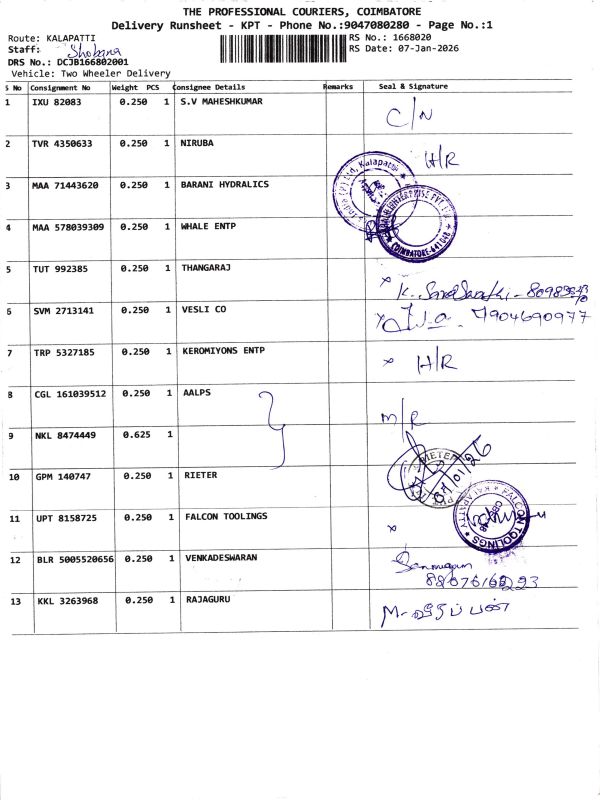 THE PROFESSIONAL COURIERS, COIMBATORE
Delivery Runsheet - KPT - Phone No.:9047080280 - Page No.:1
Route: KALAPATTI
RS No.: 1668020
Staff: Shobana
RS Date: 07-Jan-2026
DRS No.: DCJB166802001
Vehicle: Two Wheeler Delivery
S No Consignment No Weight PCS Consignee Details Remarks Seal & Signature
1 IXU 82083 0.250 1 S.V MAHESHKUMAR C/N
2 TVR 4350633 0.250 1 NIRUBA H/R
3 MAA 71443620 0.250 1 BARANI HYDRALICS
4 MAA 578039309 0.250 1 WHALE ENTP
COIMBATORE-641 048
5 TUT 992385 0.250 1 THANGARAJ
6 SVM 2713141 0.250 1 VESLI CO 7904690977
7 TRP 5327185 0.250 1 KEROMIYONS ENTP H/R
8 CGL 161039512 0.250 1 AALPS M/R
9 NKL 8474449 0.625 1
10 GPM 140747 0.250 1 RIETER
11 UPT 8158725 0.250 1 FALCON TOOLINGS
FALCON TOOLINGS KALAPATTY
12 BLR 5005520656 0.250 1 VENKADESWARAN
13 KKL 3263968 0.250 1 RAJAGURU